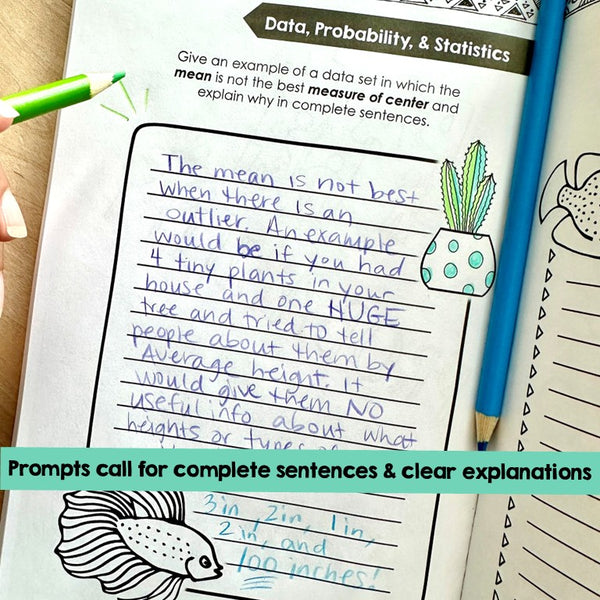 Data, Probability, & Statistics
Give an example of a data set in which the
mean is not the best measure of center and
explain why in complete sentences.
The mean is not best
when there is an
outlier. An example
would be if you had
4 tiny plants in your
house and one HUGE
tree and tried to tell
people about them by
Average height. It
would give them NO
useful info about what
heights or types of
Prompts call for complete sentences & clear explanations
3in, 2in, 1in,
2in, and
100 inches!